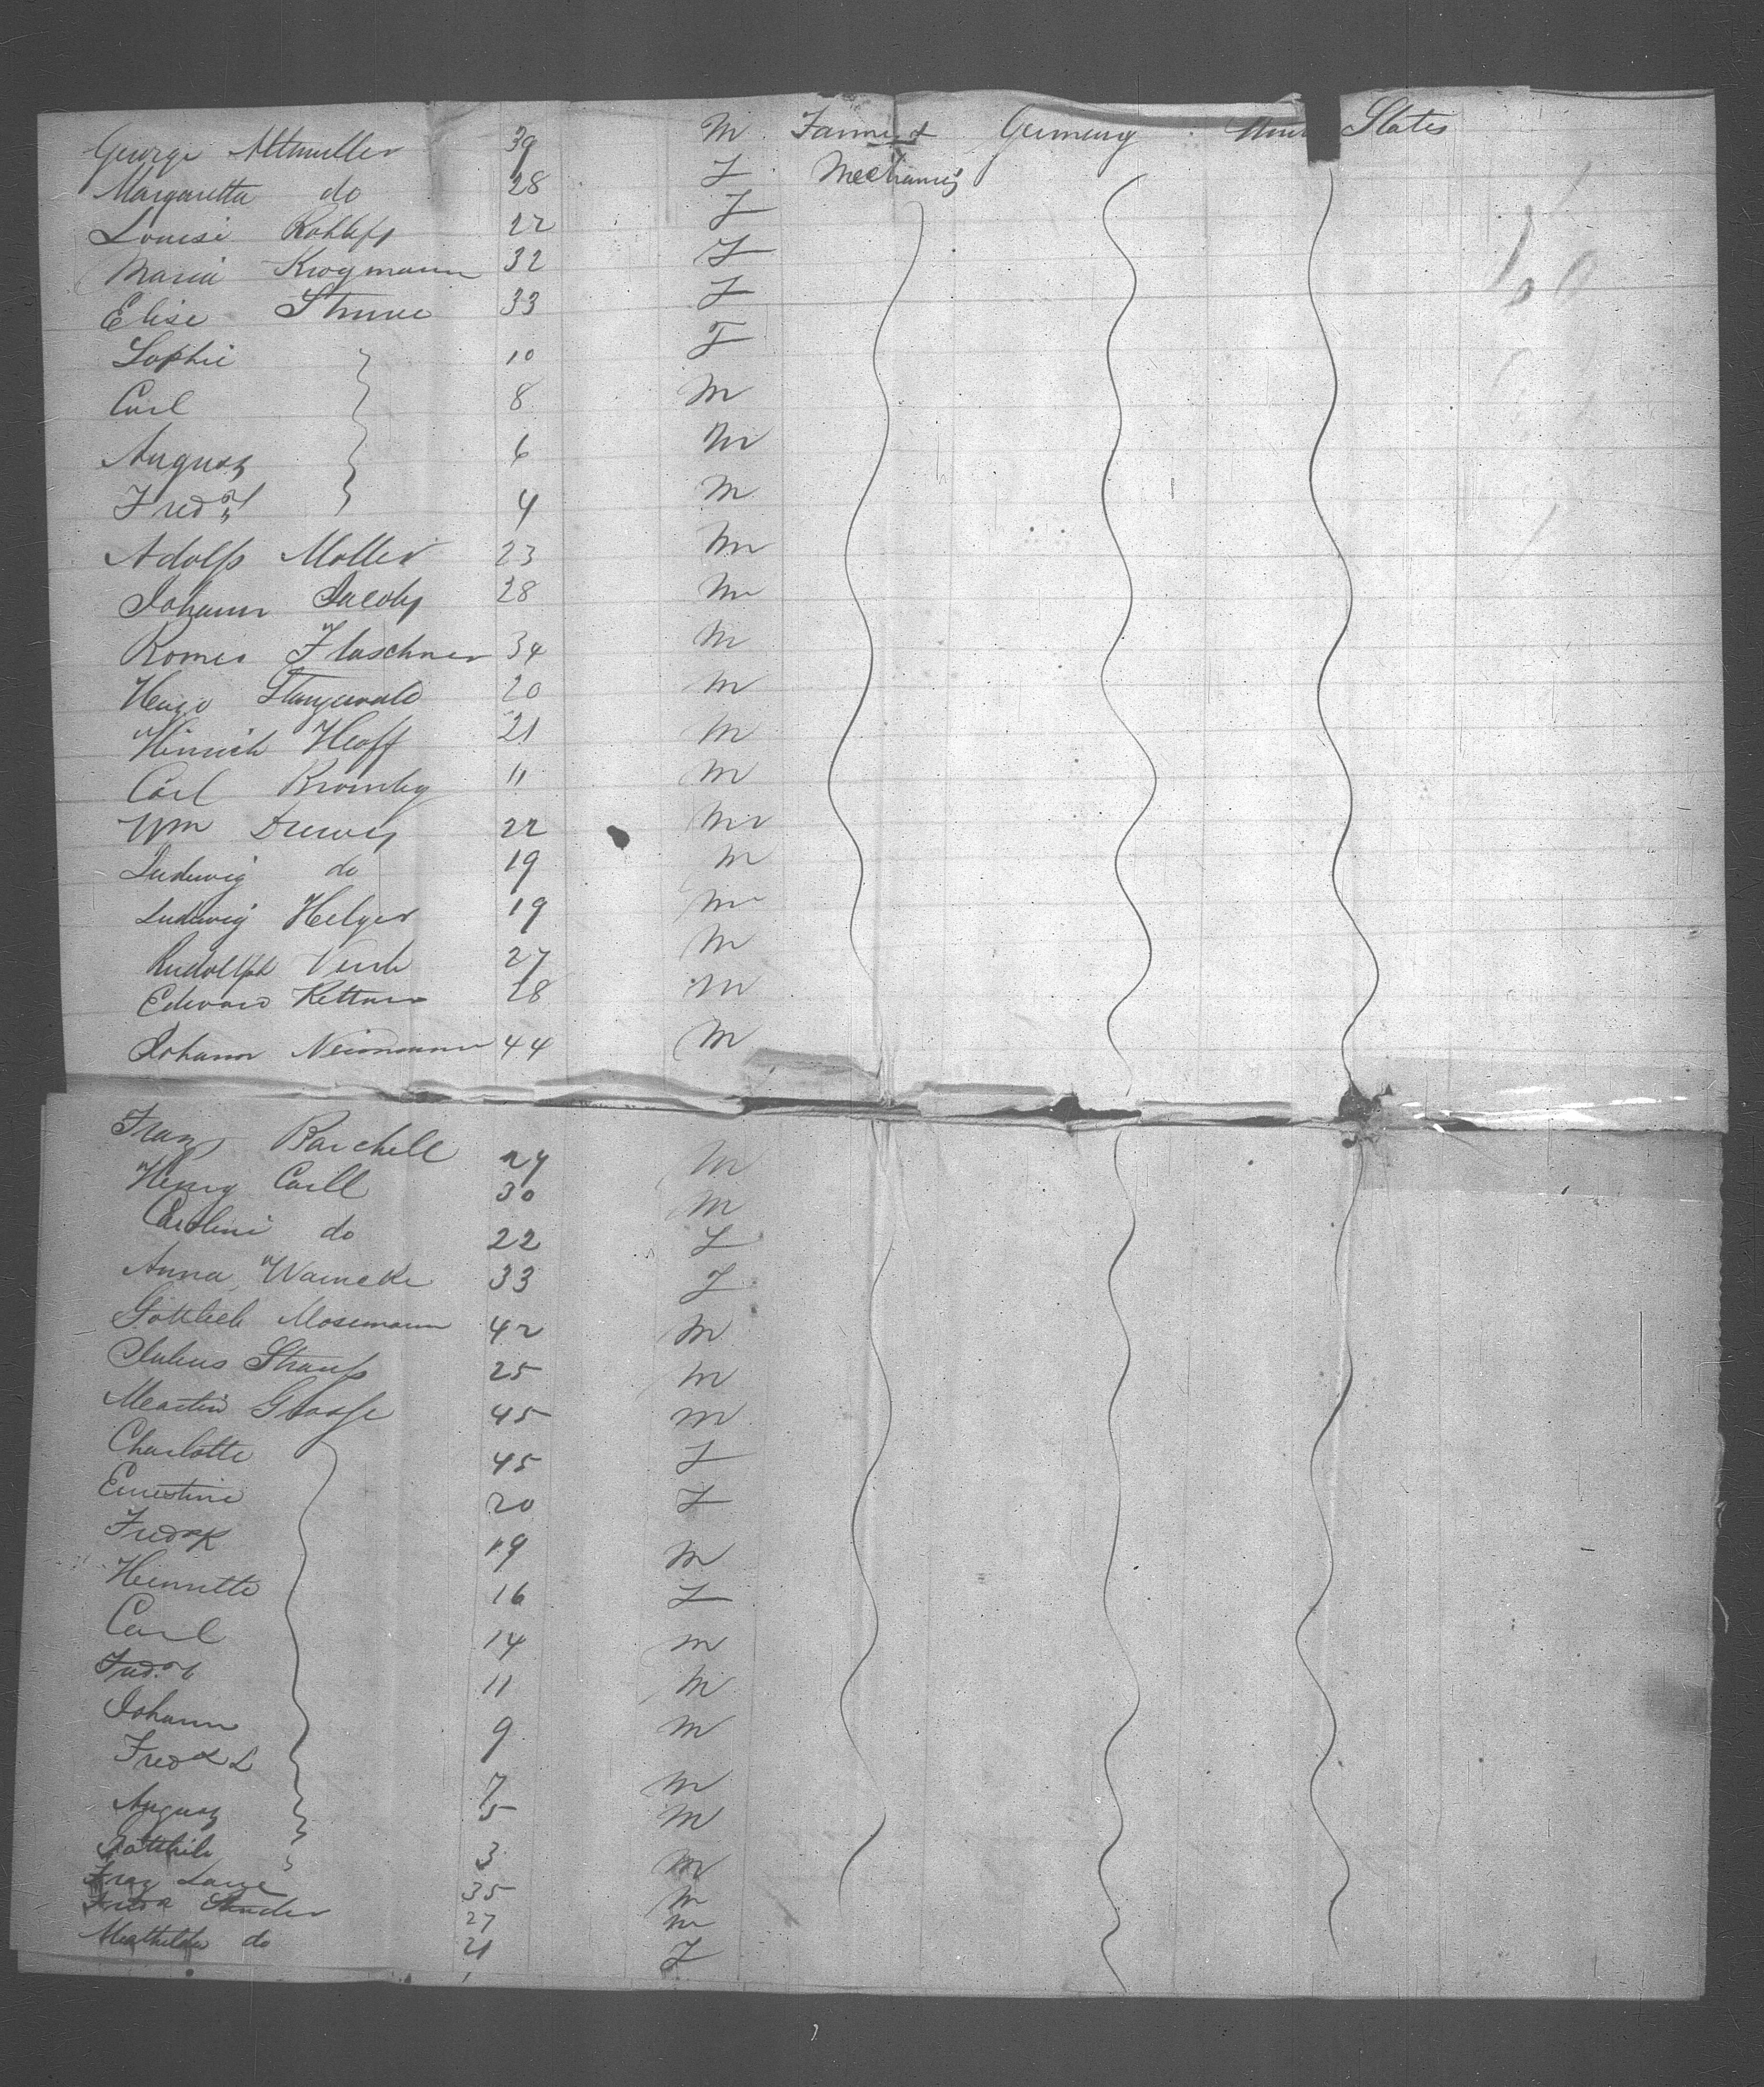 George Altmuller 39 M Farmer & Germany United States
Margaretta do 28 F Mechanics
Louise Rohlffs 22 F
Maria Krogmann 32 F
Elise Struve 33 F
Sophie 10 F
Carl 8 M
August 6 M
Fredk 4 M
Adolf Moller 23 M
Johann Jacoby 28 M
Romeo Flaschner 34 M
Hugo Stangewald 20 M
Hinrich Hoff 21 M
Carl 11 M
Wm Drewes 22 M
Ludwig do 19 M
Ludwig Helger 19 M
Rudolph 27 M
Edward Kettner 28 M
Johann Neumann 44 M
Franz Barchell 24 M
Henry Carll 30 M
Caroline do 22 F
Anna Warneke 33 F
Gottlieb Mosemann 42 M
Julius Strauss 25 M
Martin Grosse 45 M
Charlotte 45 F
Ernestine 20 F
Fredk 19 M
Henriette 16 F
Carl 14 M
11 M
Johann 9 M
Fredk L 7 M
August 5 M
Gottlieb 3 M
Franz Lange 35 M
Fredk 27 M
Mathilde do 21 F